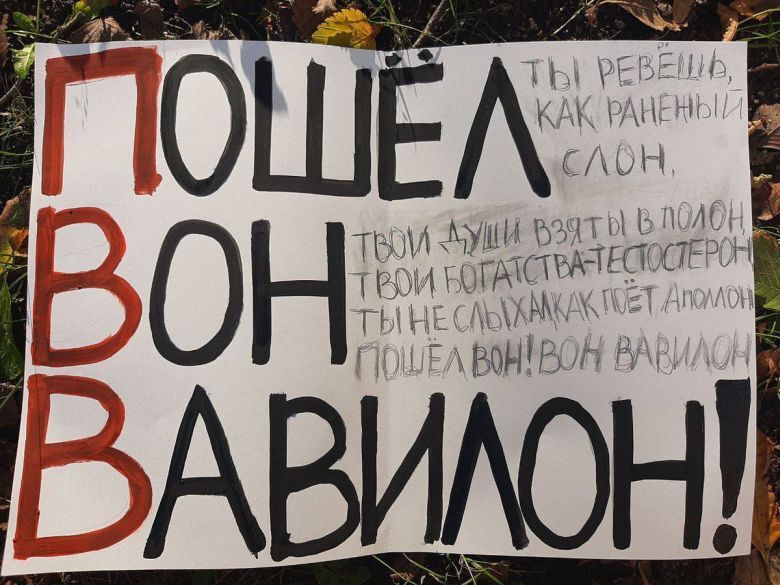 ПОШЁЛ
ТЫ РЕВЁШЬ,
КАК РАНЕНЫЙ
СЛОН,
ВОН
ТВОИ ДУШИ ВЗЯТЫ В ПОЛОН,
ТВОИ БОГАТСТВА-ТЕСТОСТЕРОН
ТЫ НЕ СЛЫХАЛ КАК ПОЁТ АПОЛЛОН
ПОШЁЛ ВОН! ВОН ВАВИЛОН
ВАВИЛОН!